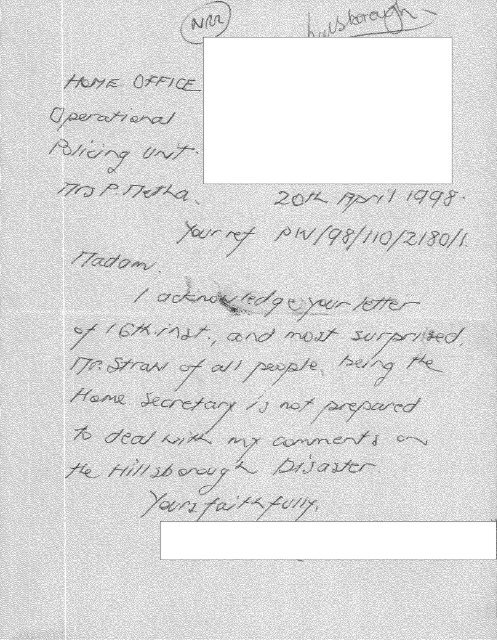 NRR
Hillsborough
HOME OFFICE
Operational
Policing Unit.
Mrs P. Metha. 20th April 1998.
Your ref PW/98/110/2180/1.
Madam.
I acknowledge your letter
of 16th inst., and most surprised,
Mr. Straw of all people, being the
Home Secretary is not prepared
to deal with my comments on
the Hillsborough Disaster.
Yours faithfully,